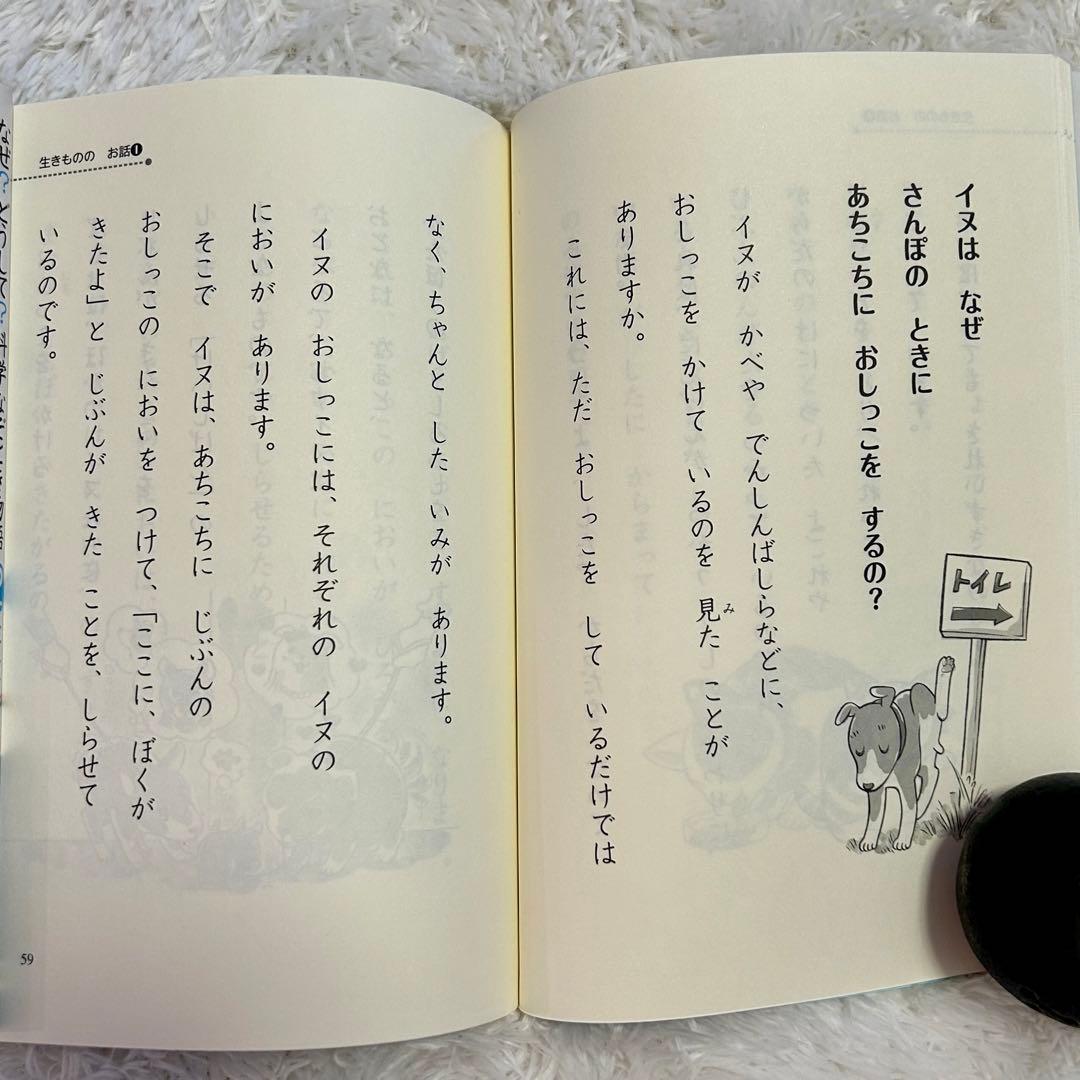 イヌは なぜ
さんぽの ときに
あちこちに おしっこを するの？
トイレ
イヌが かべや でんしんばしらなどに、
おしっこを かけて いるのを 見た ことが
み
ありますか。
これには、ただ おしっこを して いるだけでは
生きものの お話❶
なく、ちゃんと した いみが あります。
イヌの おしっこには、それぞれの イヌの
においが あります。
そこで イヌは、あちこちに じぶんの
おしっこの においを つけて、「ここに、ぼくが
きたよ」と じぶんが きた ことを、しらせて
いるのです。
59